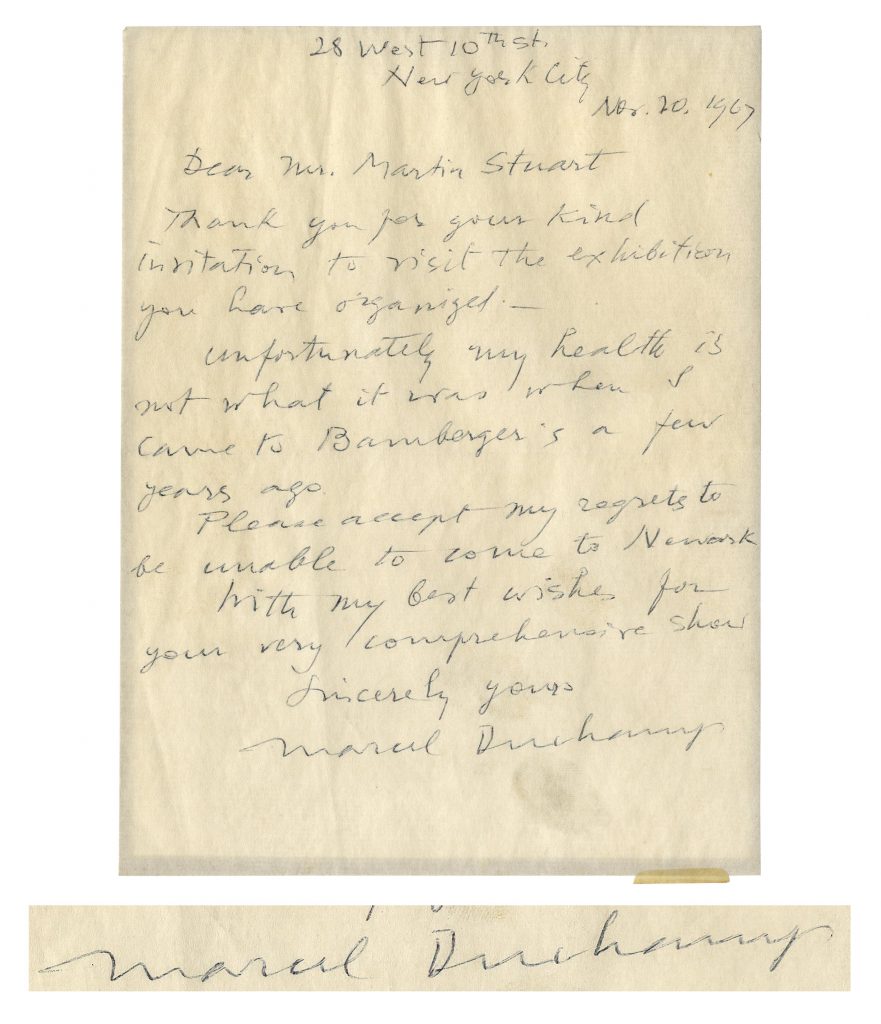 28 West 10th St.
New York City
Nov. 20. 1967
Dear Mr. Martin Stuart
Thank you for your kind
invitation to visit the exhibition
you have organized. —
Unfortunately my health is
not what it was when I
came to Bamberger's a few
years ago.
Please accept my regrets to
be unable to come to Newark
With my best wishes for
your very comprehensive show
Sincerely yours
Marcel Duchamp
Marcel Duchamp